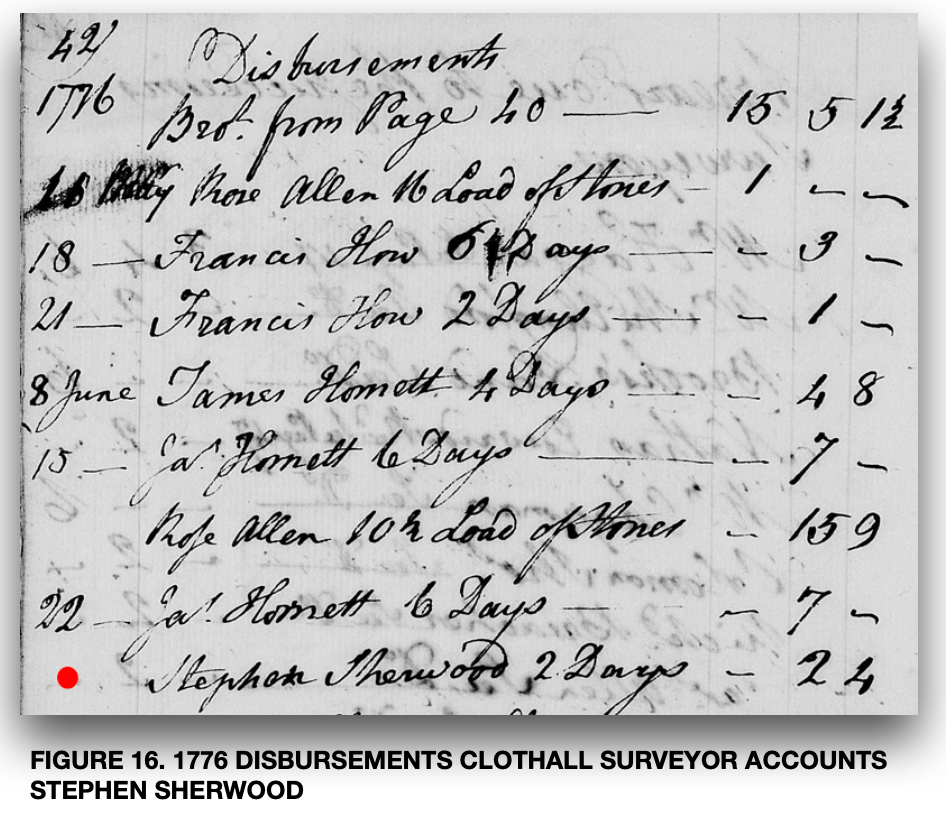 42)
Disbursements
1776
Brot. from Page 40 — 15 5 1½
16 Rose Allen 16 Load of Stones - 1 - -
18 — Francis How 6 Days — - 3 -
21 — Francis How 2 Days — - 1 -
8 June James Hornett 4 Days — - 4 8
15 — Jas. Hornett 6 Days — - 7 -
Rose Allen 10½ Load of Stones - 15 9
22 — Jas. Hornett 6 Days — - 7 -
Stephen Sherwood 2 Days - 2 4
FIGURE 16. 1776 DISBURSEMENTS CLOTHALL SURVEYOR ACCOUNTS
STEPHEN SHERWOOD